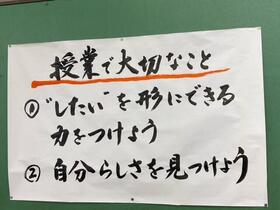 授業で大切なこと
①"したい"を形にできる
力をつけよう
②自分らしさを見つけよう